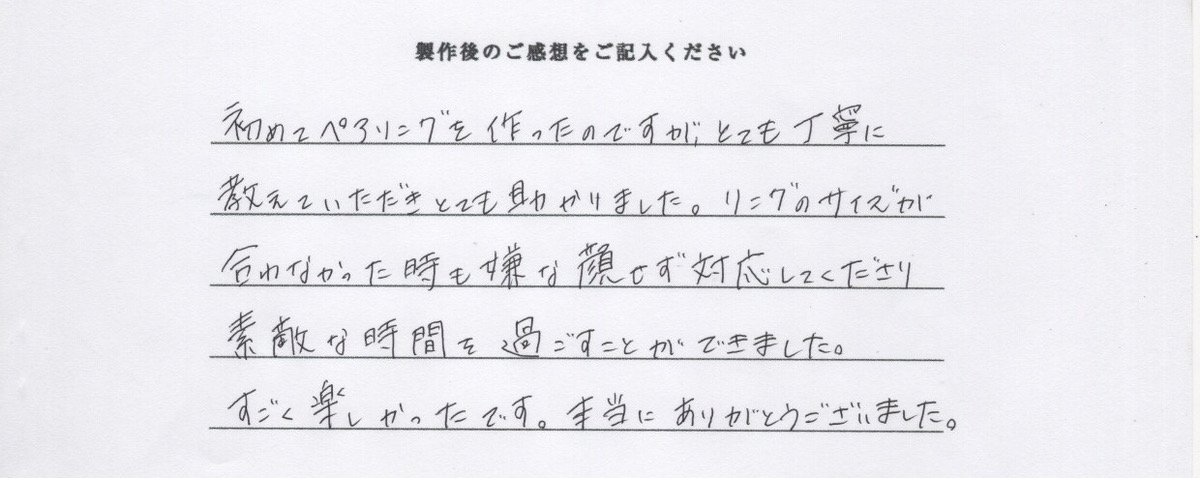 製作後のご感想をご記入ください
初めてペアリングを作ったのですが、とても丁寧に
教えていただきとても助かりました。リングのサイズが
合わなかった時も嫌な顔せず対応してくださり
素敵な時間を過ごすことができました。
すごく楽しかったです。本当にありがとうございました。